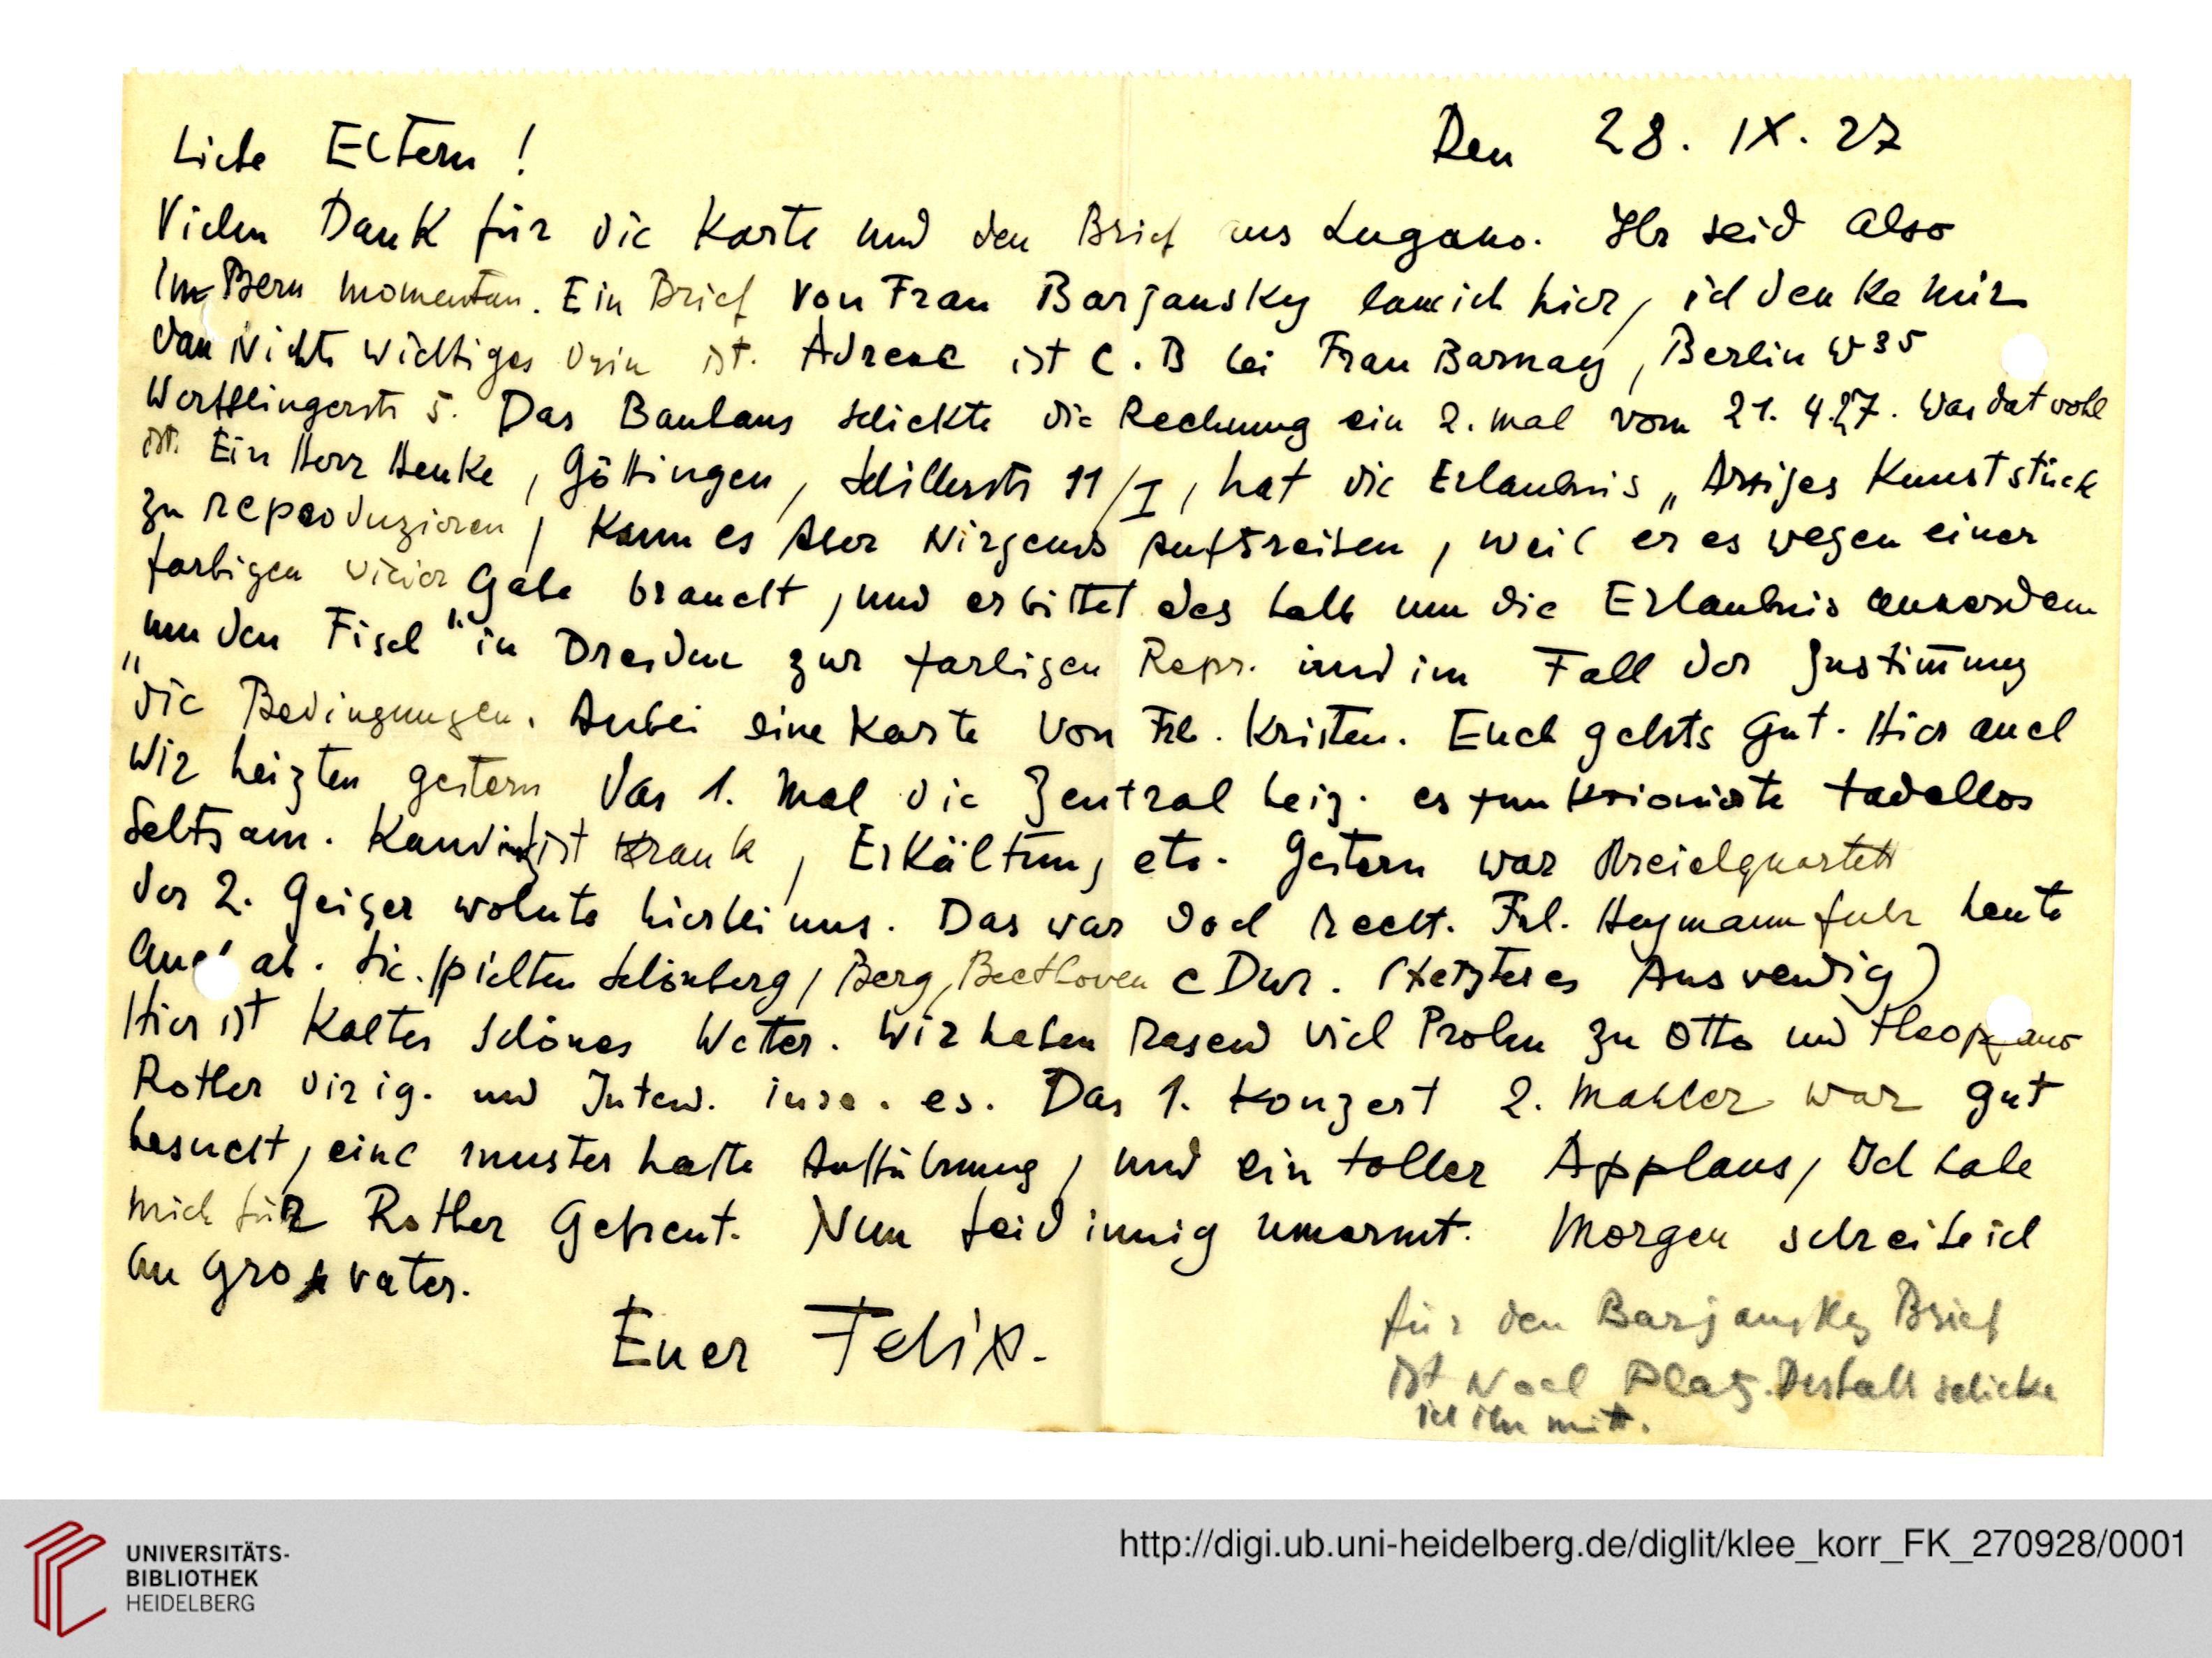 Liebe Eltern ! Den 28. IX. 27
Vielen Dank für die Karte und den Brief aus Lugano. Ihr seid also
im Bern momentan. Ein Brief von Frau Barjansky kam ich hier, ich denke mir
dan Nichts wichtiges drin ist. Adresse ist C. B bei Frau Barnay, Berlin W 35
5. Das Bauhaus schickte die Rechnung ein 2. mal vom 21. 4. 27. Was dat wohl
ist. Ein Herr Henke, Göttingen, Schillerstr 11/I, hat die Erlaubnis „Artiges Kunststück
zu reproduzieren, kann es Aber Nirgends Auftreiben, weil er es wegen einer
farbigen Gabe braucht, und erbittet des halb um die Erlaubnis ausserdem
„um den Fisch" in Dresden zur farbigen Repr. und im Fall der Zustim̄ung
die Bedingungen. Anbei eine Karte von Frl. Kristen. Euch gehts gut. Hier auch
Wir heizten gestern das 1. Mal die Zentral heiz. es funktionierte tadellos
Seltsam. Kandinsk ist krank, Erkältung etc. Gestern war
der 2. Geiger wohnte hier bei uns. Das war doch recht. Frl. Heymann fuhr heute
Auch ab. Sie spielten Schönberg, Berg, Beethoven C Dur. (Letzteres Auswendig)
Hier ist Kaltes Schönes Wetter. Wir haben rasend viel Proben zu Otto und Theophano
Rother dirig. und Intend. insc. es. Das 1. Konzert 2. Mahler war gut
besucht, eine musterhafte Aufführung, und ein toller Applaus, Ich habe
mich für Rother Gefreut. Nun seid innig umarmt. Morgen schreibe ich
an Grossvater.
Euer Felix.
für den Barjansky Brief
ist Noch Platz. Deshalb schicke
ich ihn mitt.
UNIVERSITÄTS-
BIBLIOTHEK
HEIDELBERG
http://digi.ub.uni-heidelberg.de/diglit/klee_korr_FK_270928/0001